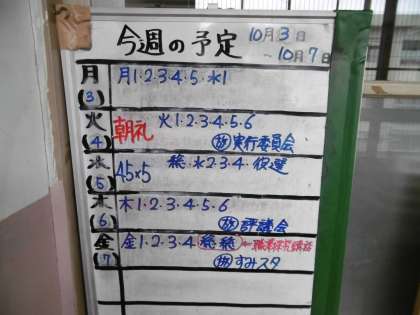 今週の予定 10月3日
～10月7日
月 月1・2・3・4・5・水1
(3)
火 朝礼 火1・2・3・4・5・6
(4) 放 実行委員会
水 45×5 総・水2・3・4 役選
(5)
木 木1・2・3・4・5・6
(6) 放 評議会
金 金1・2・3・4 総 総 ←職業探究講話
(7) 放 すみスタ